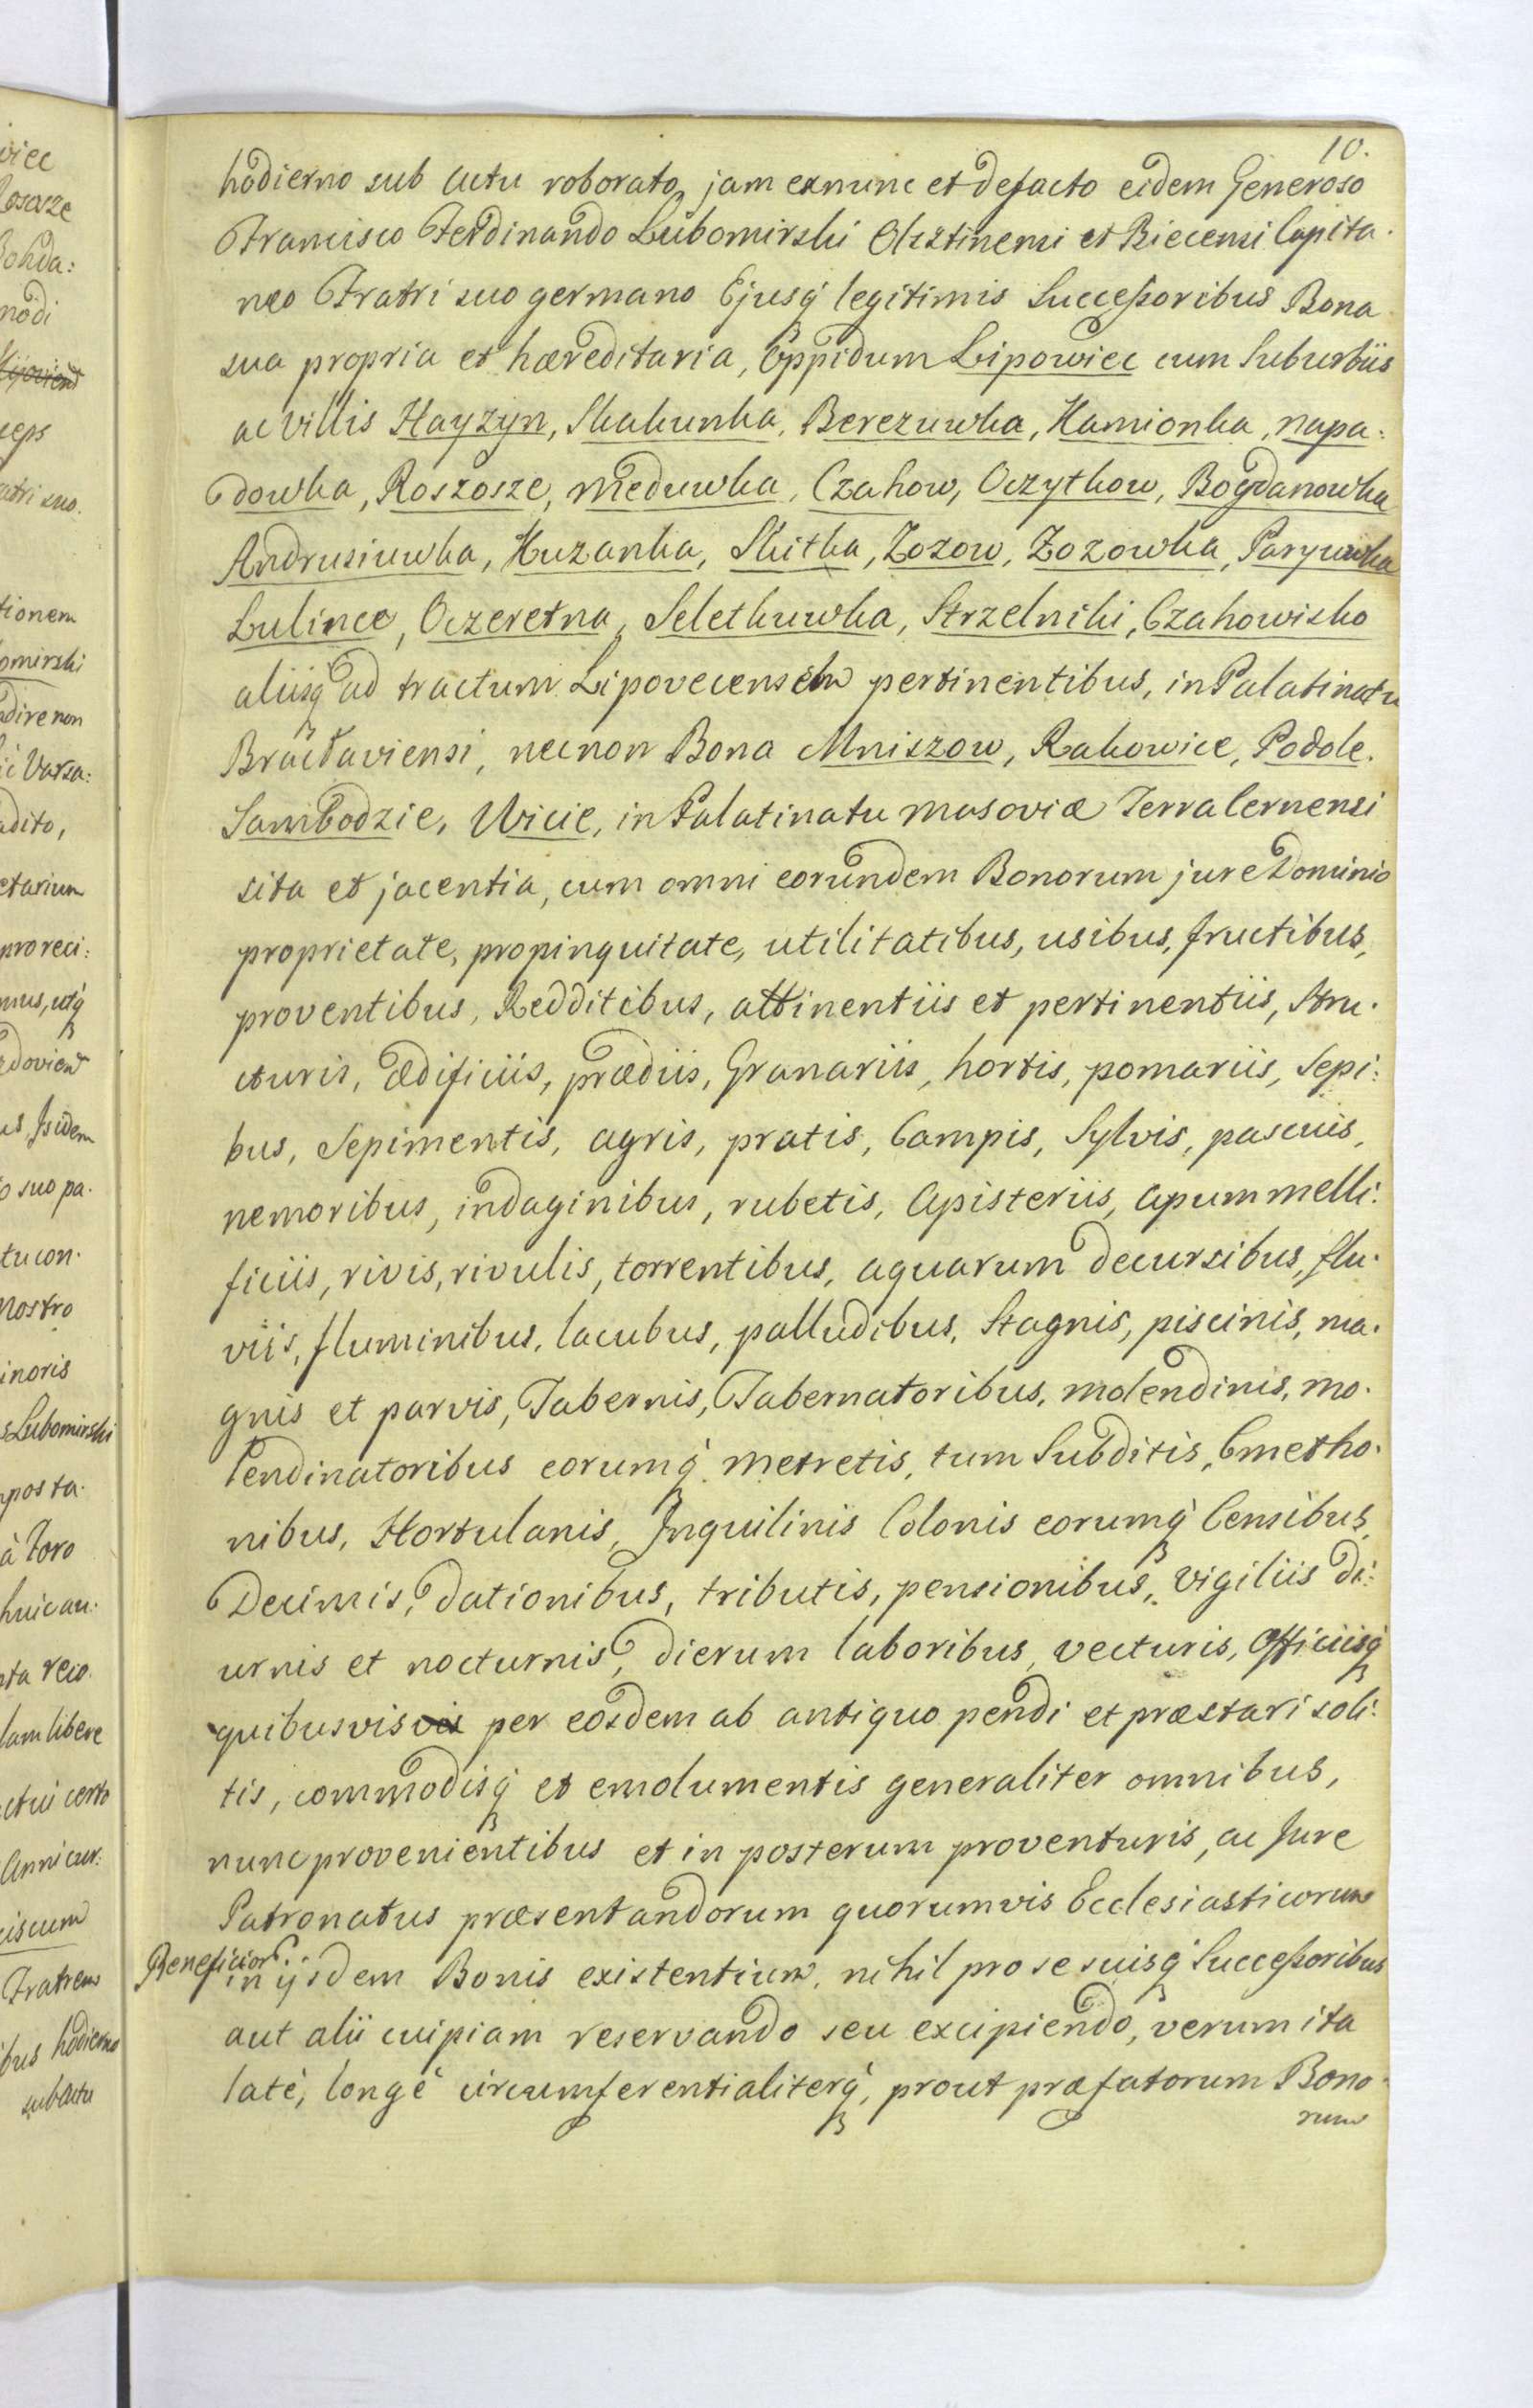 10.
hodierno sub actu roborato, jam exnunc et defacto eidem Generoso
Francisco Ferdinando Lubomirski Olsztinensi et Biecensi Capita.
neo Fratri suo germano Ejusq́ legitimis Successoribus Bona
sua propria et hæreditaria, Oppidum Lipowiec cum Suburbiis
ac villis Hayzyn, Skakunka, Berezuwka, Kamionka, napa:
dowka, Roszosze, meduwka, Czahow, Oczytkow, Bogdanowka
Andrusiuwka, Kuzanka, Skitka, Zozow, Zozowka, Paryuwka
Lulince, Oczeretna, Seletkuwka, Strzelniki, Czahowisko
aliisq́ ad tractum Lipovecensem pertinentibus, in Palatinatu
Bractaviensi, necnon Bona Mniszow, Rakowice, Podole.
Sambodzie, Uicie, in Palatinatu masoviæ Terra Cernensi
sita et jacentia, cum omni eorundem Bonorum jure Dominio
proprietate, propinquitate, utilitatibus, usibus, fructibus,
proventibus, Redditibus, attinentiis et pertinentiis, stru.
cturis, ædificiis, prædiis, Granariis, hortis, pomariis, Sepi:
bus, Sepimentis, agris, pratis, Campis, Sylvis, pascuis,
nemoribus, indaginibus, rubetis, Apisteriis, apum melli:
ficiis, rivis, rivulis, torrentibus, aquarum decursibus, flu.
viis, fluminibus, lacubus, palludibus, Stagnis, piscinis, ma.
gnis et parvis, Tabernis, Tabernatoribus, molendinis, mo.
lendinatoribus eorumq́ metretis, tum Subditis, Cmetho.
nibus, Hortulanis, Inquilinis Colonis eorumq́ Censibus,
Decimis, dationibus, tributis, pensionibus, vigiliis di:
urnis et nocturnis, dierum laboribus, vecturis, Officiisq́
quibusvis vis per eosdem ab antiquo pendi et præstari soli:
tis, commodisq́ et emolumentis generaliter omnibus,
nunc provenientibus et in posterum proventuris, ac Jure
Patronatus præsentandorum quorumvis Ecclesiasticorum
Beneficior:
in ijsdem Bonis existentium, nihil pro se suisq́ Successoribus
aut alii cuipiam reservando seu excipiendo, verum ita
latè, longè circumferentialiterq́, prout præfatorum Bono.
rum